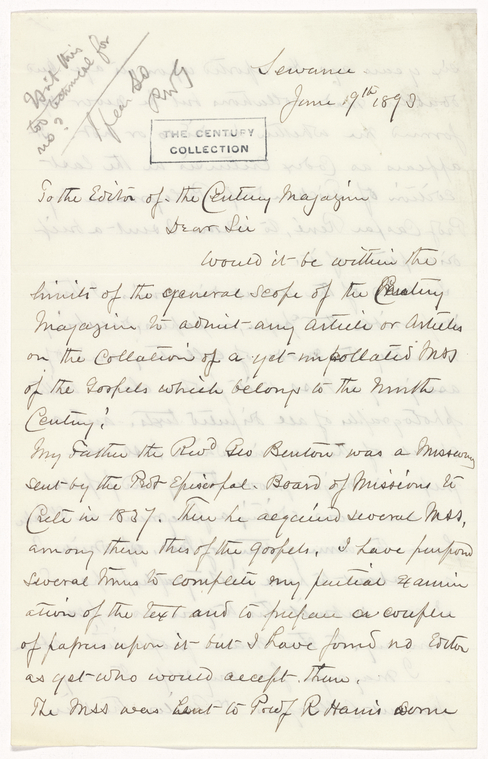 Isn't this
too technical for
us?
I fear so
RWG
Sewanee
June 19th 1893
THE CENTURY
COLLECTION
To the Editor of the Century Magazine
Dear Sir
Would it be within the
limits of the general scope of the Century
Magazine to admit any article or articles
on the Collation of a yet uncollated MSS
of the Gospels which belong to the Ninth
Century?
My Father the Revd Geo Benton was a Missionary
sent by the Prot Episcopal Board of Missions to
Crete in 1837. Then he acquired several MSS,
among them this of the Gospels. I have purposed
several times to complete my partial examin
ation of the Text and to prepare a couple
of papers upon it but I have found no Editor
as yet who would accept them.
The MSS was lent to Prof R Harris some